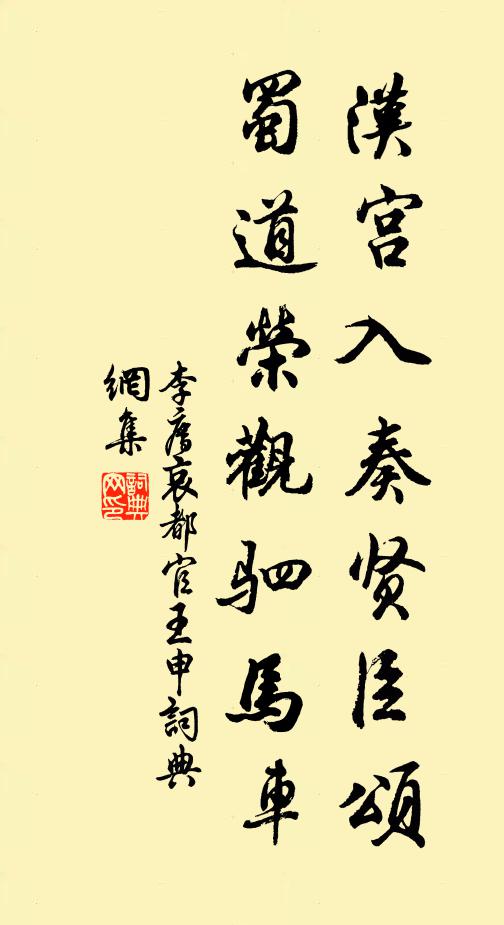 漢宫入奏贤臣頌
蜀道榮觀驷馬車
李廌哀都官王申詞典
網集
詞典网印